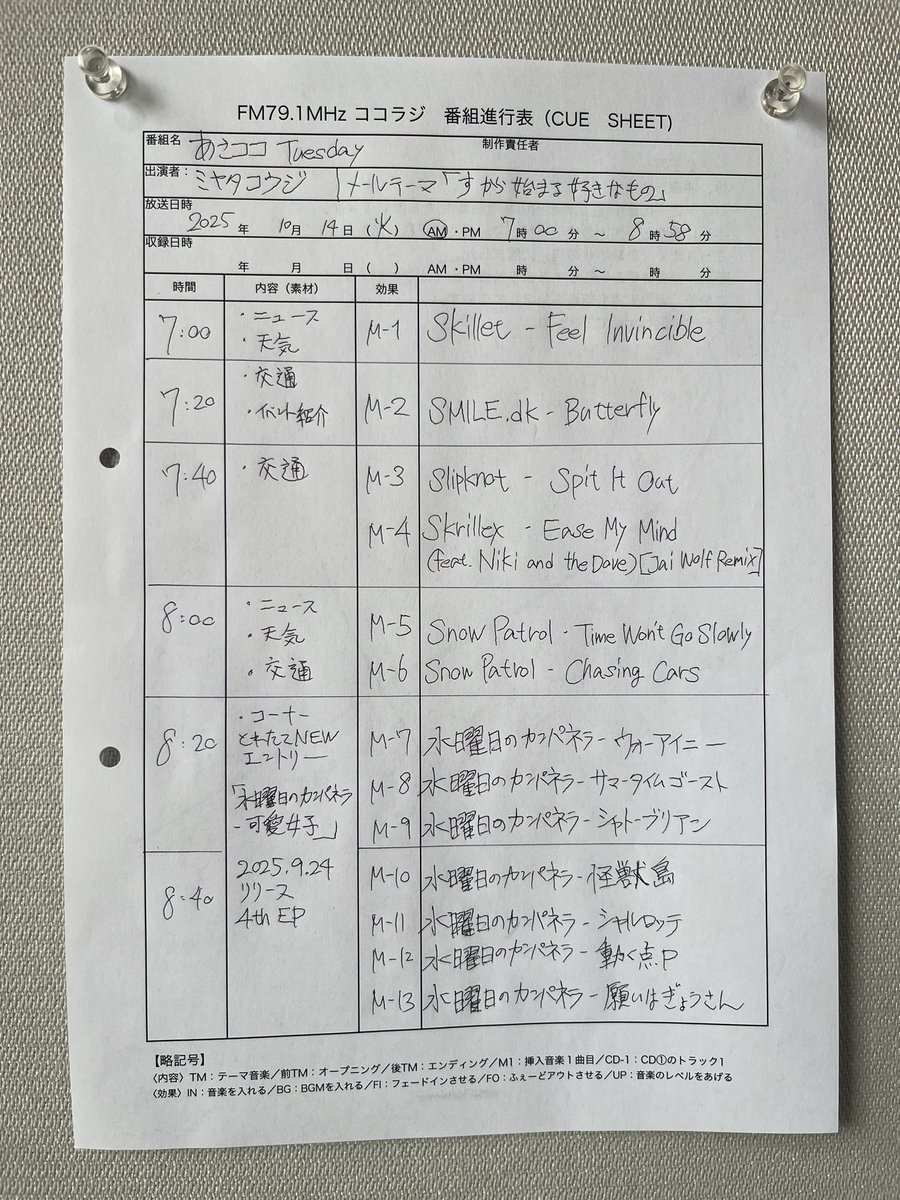 FM79.1MHz ココラジ 番組進行表 (CUE SHEET)
番組名 あさココ Tuesday 制作責任者
出演者： ミヤタコウジ メールテーマ「すから始まる好きなもの」
放送日時 2025 年 10 月 14 日 (火) AM・PM 7 時 00 分 〜 8 時 58 分
収録日時 年 月 日 ( ) AM・PM 時 分 〜 時 分
時間 内容（素材） 効果
7:00 ・ニュース M-1 Skillet - Feel Invincible
・天気
7:20 ・交通 M-2 SMILE.dk - Butterfly
・イベント紹介
7:40 ・交通 M-3 Slipknot - Spit It Out
M-4 Skrillex - Ease My Mind
(feat. Niki and the Dave) [Jai Wolf Remix]
8:00 ・ニュース M-5 Snow Patrol - Time Won't Go Slowly
・天気
・交通 M-6 Snow Patrol - Chasing Cars
8:20 ・コーナー M-7 水曜日のカンパネラ - ウォーアイニー
とれたてNEW
エントリー M-8 水曜日のカンパネラ - サマータイムゴースト
「水曜日のカンパネラ M-9 水曜日のカンパネラ - シャトーブリアン
- 可愛女子」
8:40 2025.9.24 M-10 水曜日のカンパネラ - 怪獣島
リリース M-11 水曜日のカンパネラ - シャルロッテ
4th EP M-12 水曜日のカンパネラ - 動く点P
M-13 水曜日のカンパネラ - 願いはぎょうさん
【略記号】
〈内容〉TM：テーマ音楽／前TM：オープニング／後TM：エンディング／M1：挿入音楽１曲目／CD-1：CD①のトラック1
〈効果〉IN：音楽を入れる／BG：BGMを入れる／FI：フェードインさせる／FO：ふぇーどアウトさせる／UP：音楽のレベルをあげる